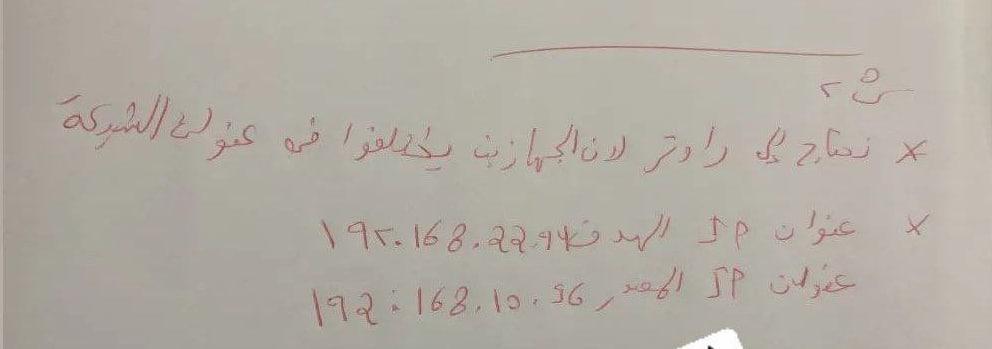 س٢
* نحتاج إلى راوتر لان الجهازين يختلفوا في عنوان الشبكة
* عنوان IP الهدف 192.168.22.94
عنوان IP المصدر 192.168.10.56